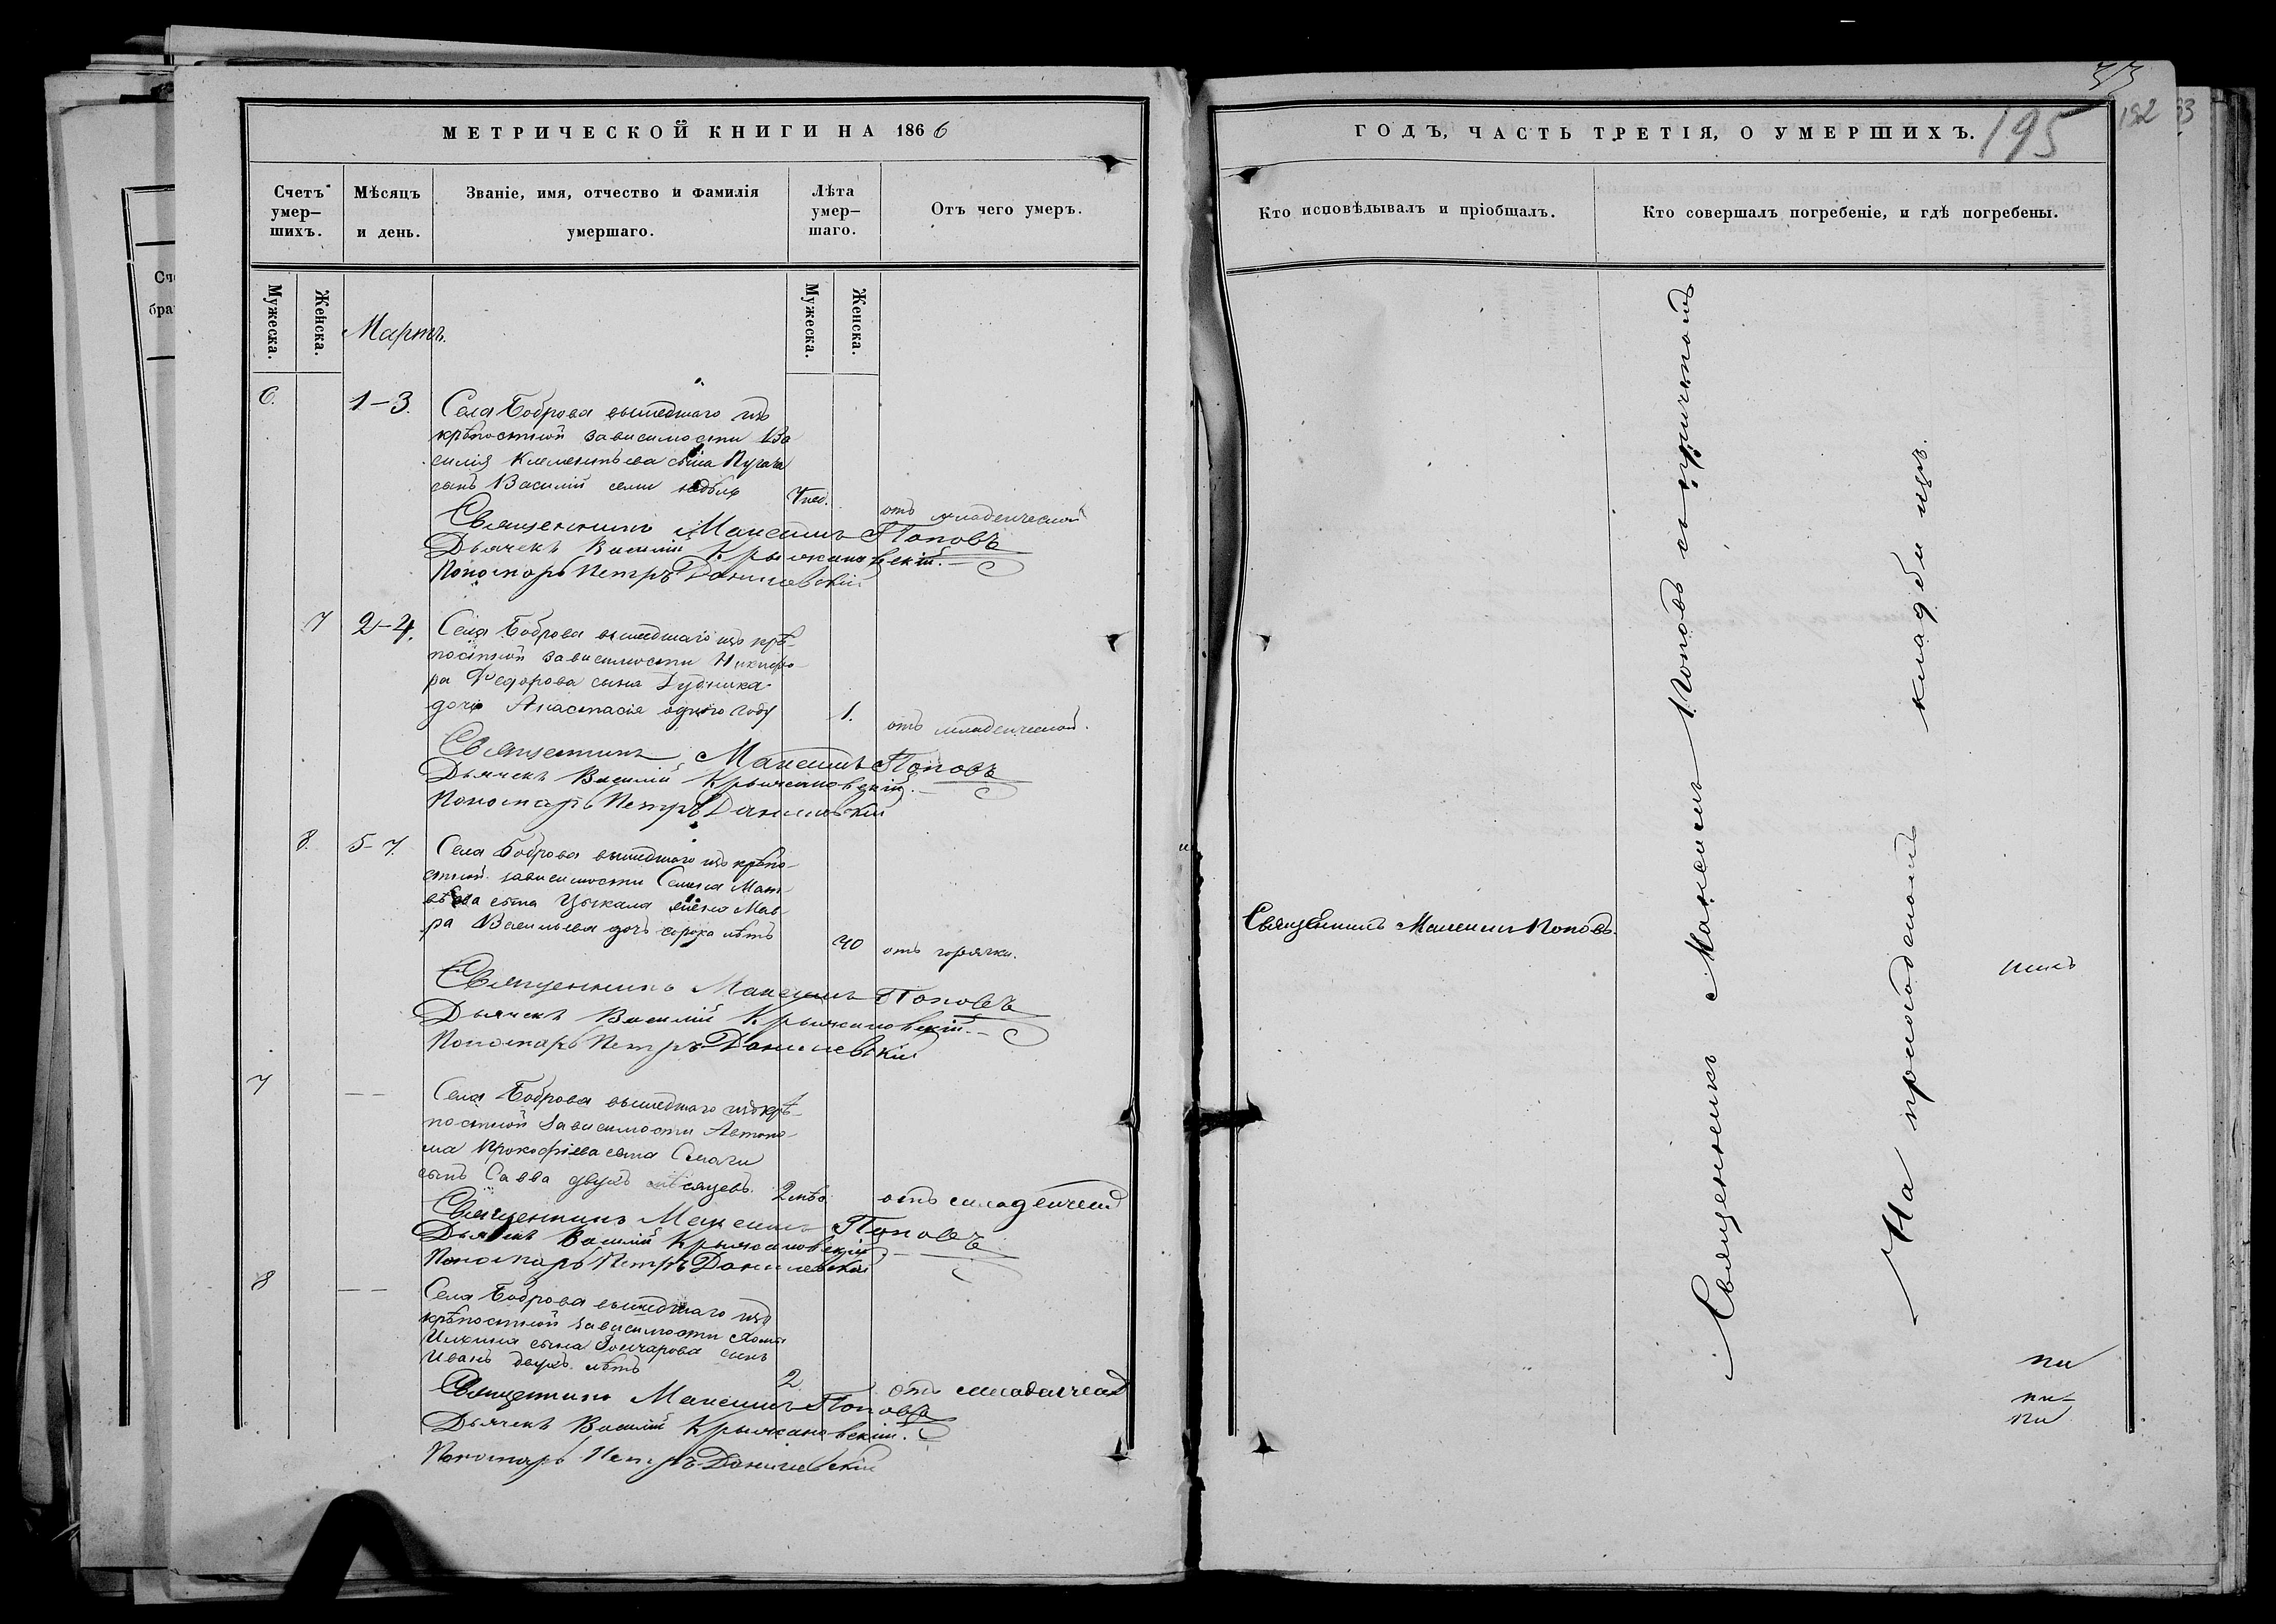 МЕТРИЧЕСКОЙ КНИГИ НА 1866
Счетъ умер-
шихъ.
Мѣсяцъ
и день.
Званіе, имя, отчество и фамилія
умершаго.
Лѣта
умер-
шаго.
Отъ чего умеръ.
Мужеска.
Женска.
Мартъ.
Мужеска.
Женска.
6.
1-3.
Села Боброва вышедшаго изъ
крѣпостной зависимости Ва
силія Клементьева сына Пугача
сынъ Василій семи недѣль
7 нед.
отъ младенческой
Священникъ Максимъ Поповъ
Дьячекъ Василій Крыжановскій.
Пономарь Петръ Данилевскій
7
2-4.
Села Боброва вышедшаго изъ крѣ-
постной зависимости Никифо-
ра Федорова сына Дудника
дочь Анастасія одного году
1.
отъ младенческой.
Священникъ Максимъ Поповъ
Дьячекъ Василій Крыжановскій.
Пономарь Петръ Данилевскій
8.
5-7.
Села Боброва вышедшаго изъ крѣпо-
стной зависимости Семена Мат-
вѣева сына Цыкала жена Мав-
ра Васильева дочь сорока лѣтъ
40
отъ горячки.
Священникъ Максимъ Поповъ
Дьячекъ Василій Крыжановскій.
Пономарь Петръ Данилевскій
7
— —
Села Боброва вышедшаго изъ крѣ-
постной зависимости Автоно-
ма Прокофіева сына
сынъ Савва двухъ мѣсяцевъ.
2 мѣс.
отъ младенческ
Священникъ Максимъ Поповъ
Дьячекъ Василій Крыжановскій
Пономарь Петръ Данилевскій
8
— —
Села Боброва вышедшаго изъ
крѣпостной зависимости
сына Гончарова сынъ
Иванъ двухъ лѣтъ
2
отъ младенческ
Священникъ Максимъ Поповъ
Дьячекъ Василій Крыжановскій.
Пономарь Петръ Данилевскій
33
195
192
93
ГОДЪ, ЧАСТЬ ТРЕТІЯ, О УМЕРШИХЪ.
Кто исповѣдывалъ и пріобщалъ.
Кто совершалъ погребеніе, и гдѣ погребены.
Священникъ Максимъ Поповъ.
Священникъ Максимъ Поповъ съ причтомъ
На приходскомъ кладбищѣ.